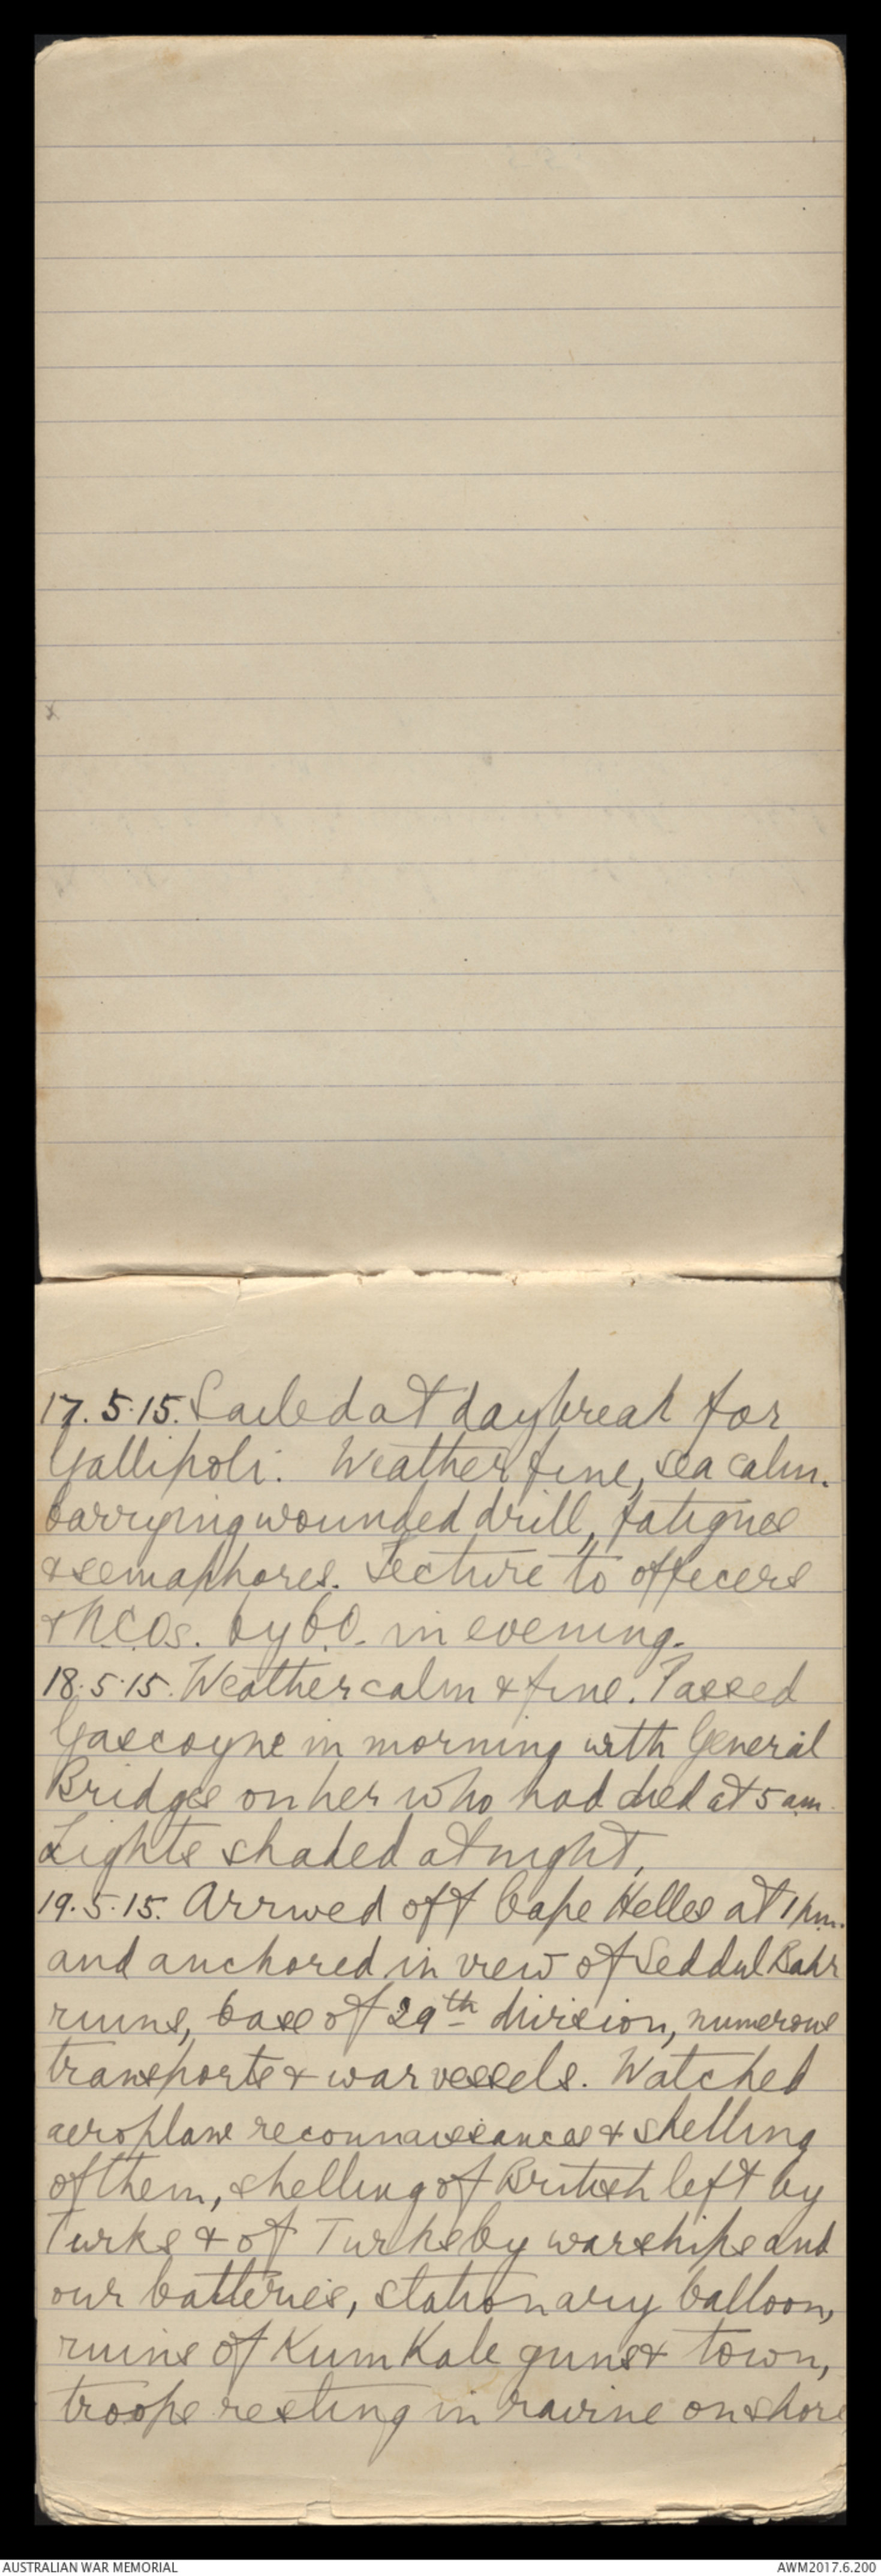 17.5.15. Sailed at daybreak for
Gallipoli. Weather fine, sea calm.
Carrying wounded drill, fatigues
& semaphores. Lecture to officers
& N.C.Os. by C.O. in evening.
18.5.15. Weather calm & fine. Passed
Gascoyne in morning with General
Bridges on her who had died at 5 am.
Lights shaded at night.
19.5.15. Arrived off Cape Helles at 1 pm.
and anchored in view of Seddul Bahr
ruins, base of 29th division, numerous
transports & war vessels. Watched
aeroplane reconnaissances & shelling
of them, shelling of British left by
Turks & of Turks by warships and
our batteries, stationary balloon,
ruins of Kum Kale guns & town,
troops resting in ravine on shore
AUSTRALIAN WAR MEMORIAL
AWM2017.6.200